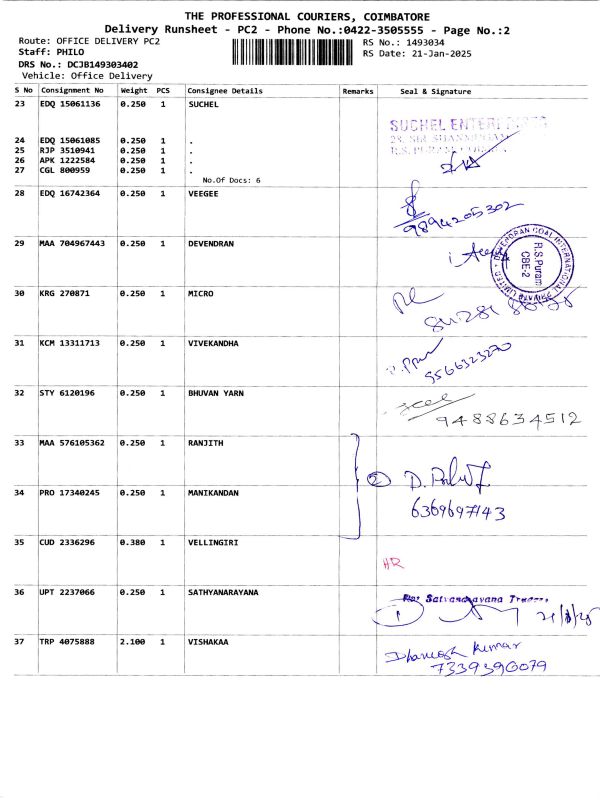 THE PROFESSIONAL COURIERS, COIMBATORE
Delivery Runsheet - PC2 - Phone No.:0422-3505555 - Page No.:2
Route: OFFICE DELIVERY PC2
RS No.: 1493034
Staff: PHILO
RS Date: 21-Jan-2025
DRS No.: DCJB149303402
Vehicle: Office Delivery
S No Consignment No Weight PCS Consignee Details Remarks Seal & Signature
23 EDQ 15061136 0.250 1 SUCHEL
SUCHEL
24 EDQ 15061085 0.250 1 .
25 RJP 3510941 0.250 1 .
26 APK 1222584 0.250 1 .
27 CGL 800959 0.250 1 .
No.Of Docs: 6
28 EDQ 16742364 0.250 1 VEEGEE
9894205302
29 MAA 704967443 0.250 1 DEVENDRAN
R.S.Puram
CBE-2
30 KRG 270871 0.250 1 MICRO
31 KCM 13311713 0.250 1 VIVEKANDHA
9566323270
32 STY 6120196 0.250 1 BHUVAN YARN
9488634512
33 MAA 576105362 0.250 1 RANJITH
2
34 PRO 17340245 0.250 1 MANIKANDAN
6369697143
35 CUD 2336296 0.380 1 VELLINGIRI
HR
36 UPT 2237066 0.250 1 SATHYANARAYANA
37 TRP 4075888 2.100 1 VISHAKAA
Kumar
7339396079